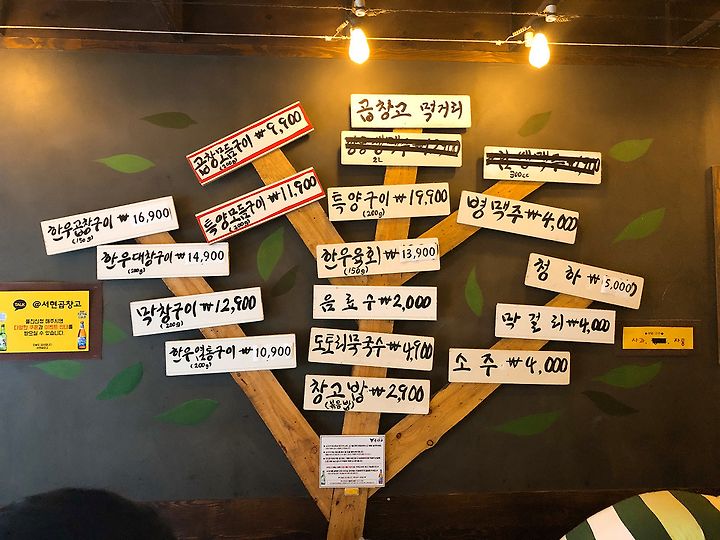 곱창고 먹거리
2L
300cc
곱창모듬구이 ₩9,900
(200g)
특양모듬구이 ₩11,900
(200g)
특양구이 ₩19,900
(200g)
병맥주 ₩4,000
한우곱창구이 ₩16,900
(150g)
한우대창구이 ₩14,900
(200g)
한우육회 ₩13,900
(150g)
청하 ₩5,000
막창구이 ₩12,900
(200g)
음료수 ₩2,000
막걸리 ₩4,000
한우염통구이 ₩10,900
(200g)
도토리묵국수 ₩4,900
소주 ₩4,000
창고밥 ₩2,900
(볶음밥)
TALK
@서현곱창고
플친신청 해주시면
받으실 수 있습니다.